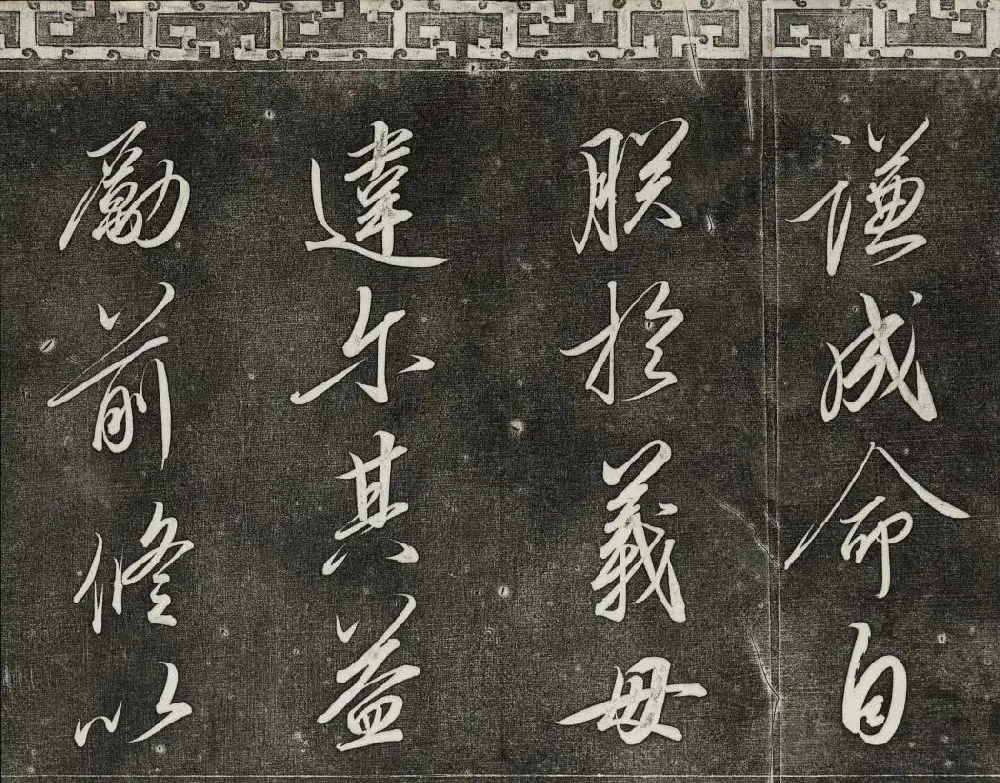 謙成命自
朕於義毋
違尔其益
勵前脩以